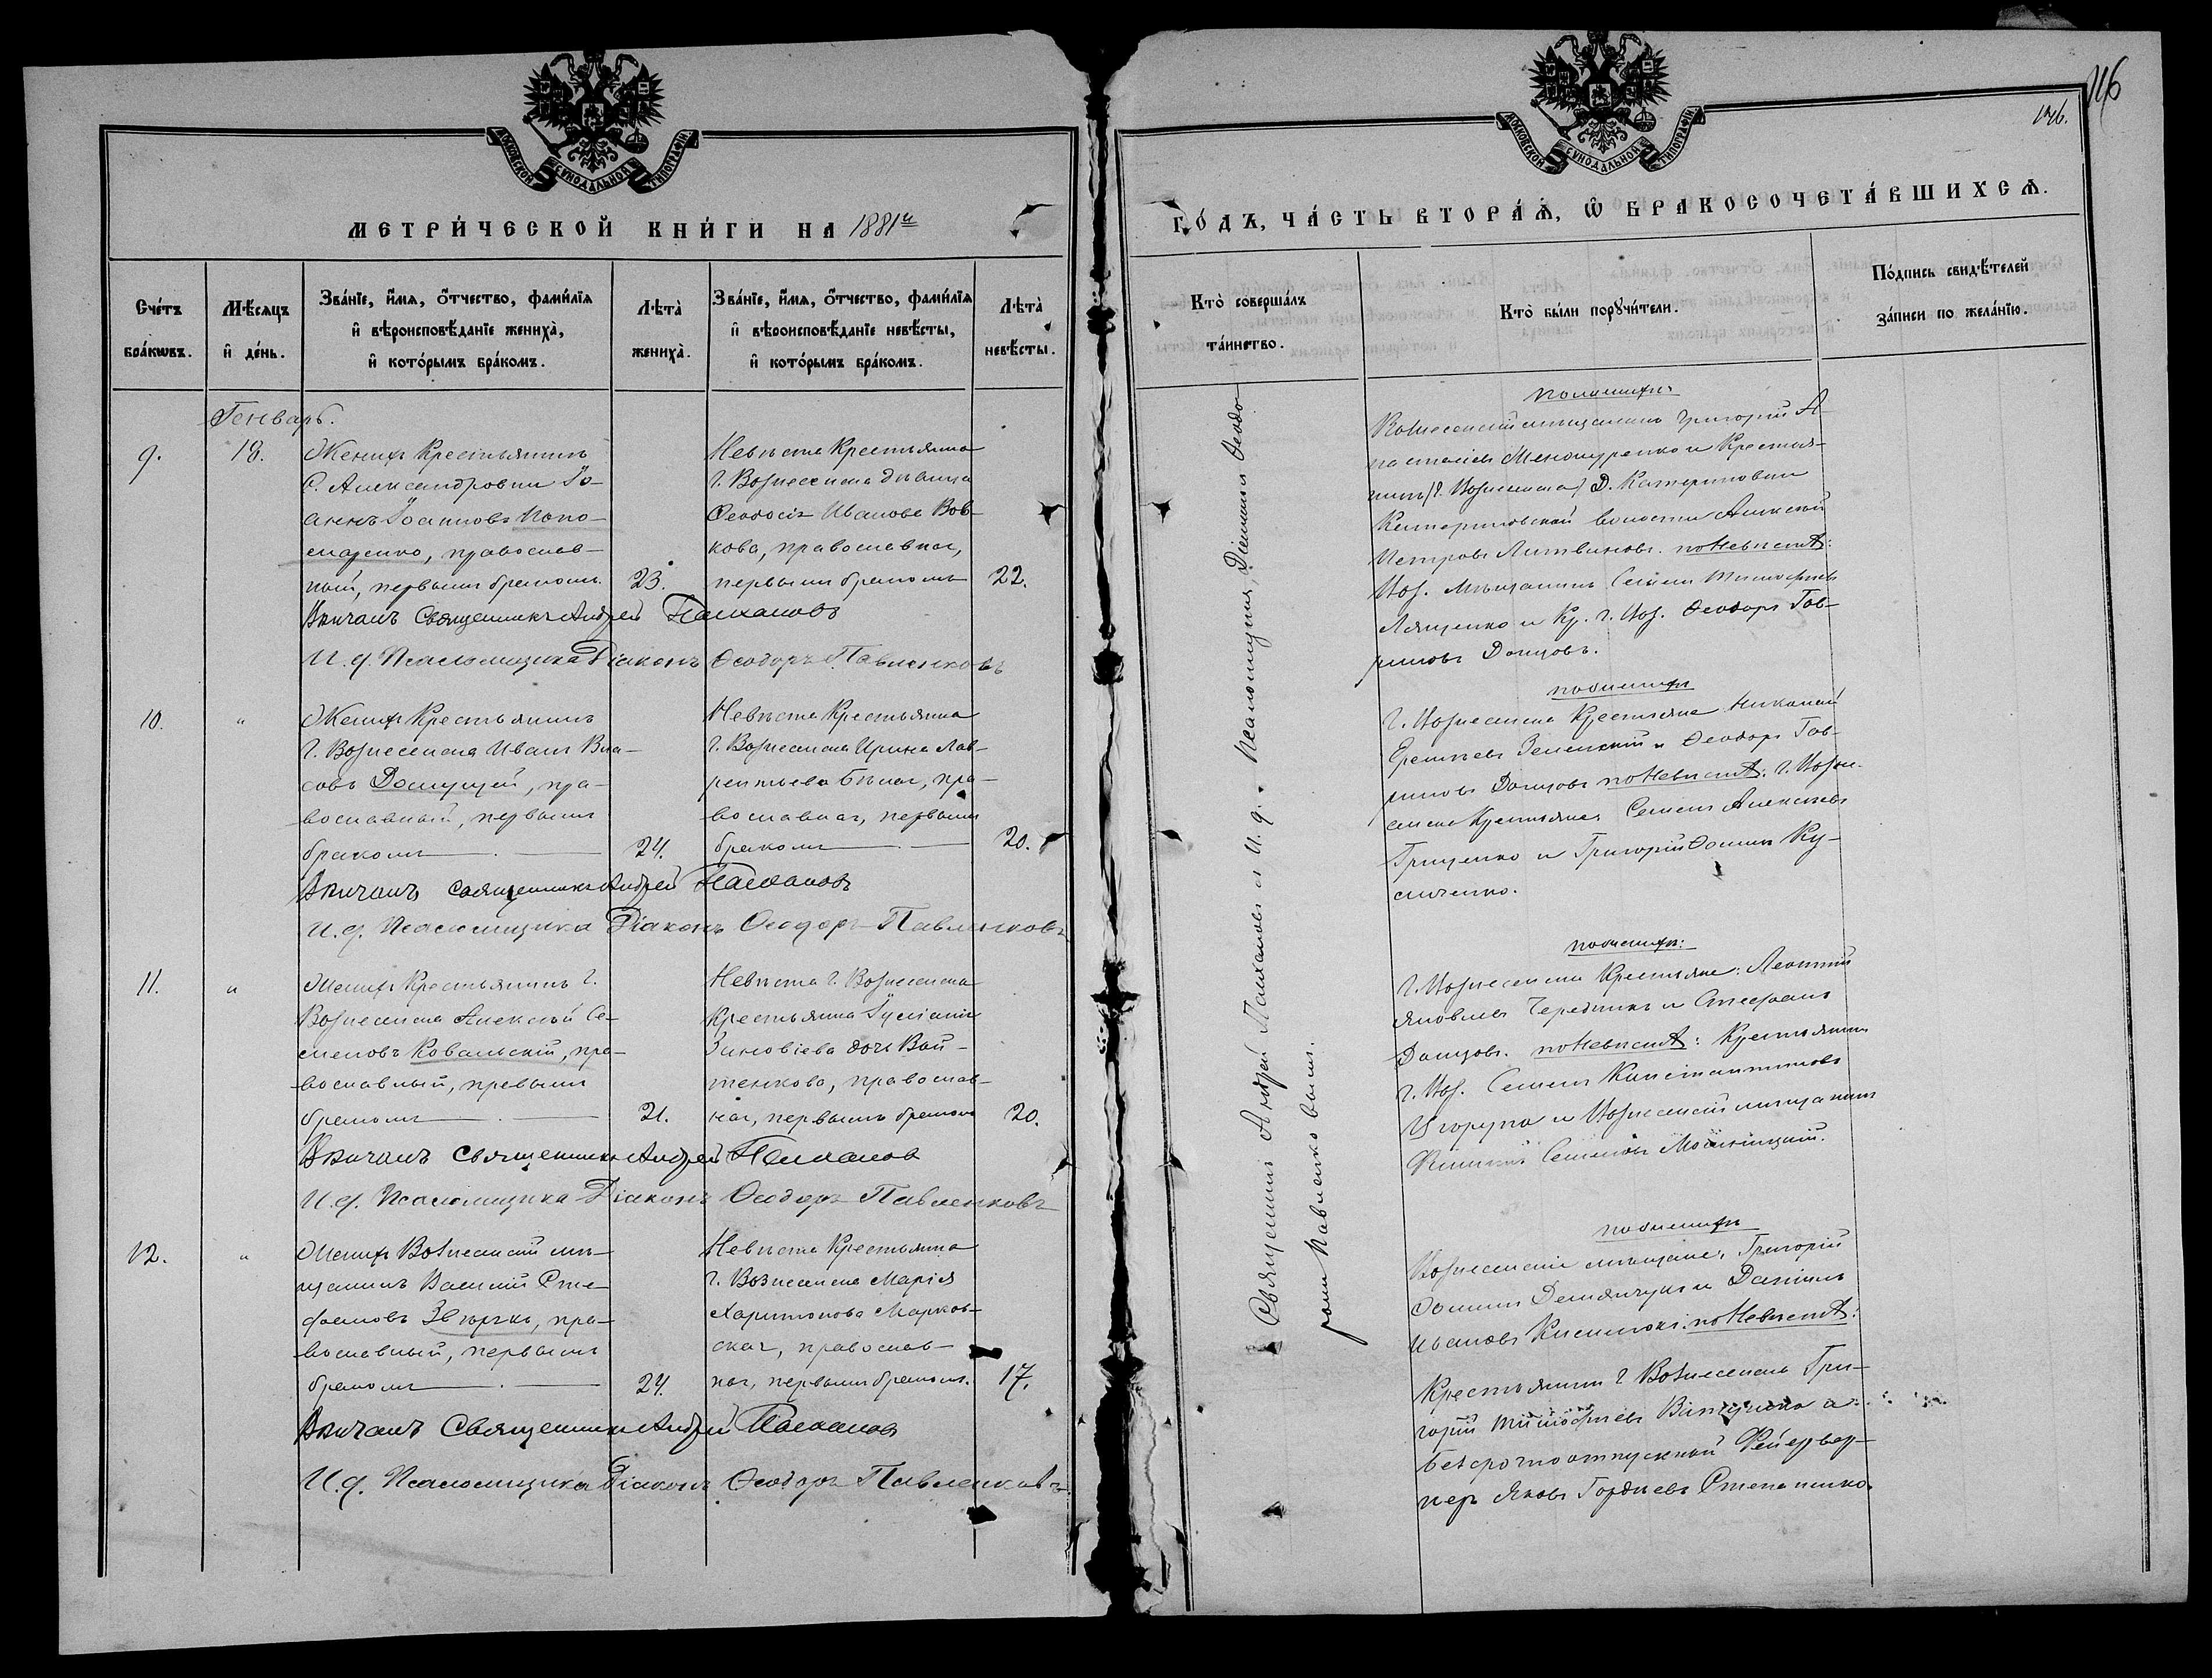 МОСКОВСКОЙ СУНОДАЛЬНОЙ ТИПОГРАФІИ
МЕТРИ́ЧЕСКОЙ КНИ́ГИ НА 1881й
Сче́тъ бра́кωвъ.
Мѣ́сяцъ и҆ де́нь.
Зва́нїе, и҆́мя, ѻ҆́тчество, фами́лїя
и҆ вѣроисповѣ́данїе жениха̀,
и҆ кото́рымъ бра́комъ.
Лѣта̀ жениха̀.
Зва́нїе, и҆́мя, ѻ҆́тчество, фами́лїя
и҆ вѣроисповѣ́данїе невѣ́сты,
и҆ кото́рымъ бра́комъ.
Лѣта̀ невѣ́сты.
Генварь.
9.
18.
Женихъ Крестьянинъ
С. Александровки Іо-
аннъ Іоанновъ Поно-
маренко, православ-
ный, первымъ бракомъ.
23.
Невѣста Крестьянка
г. Вознесенска дѣвица
Ѳеодосія Иванова Вов-
кова, православная,
первымъ бракомъ
22.
Вѣнчалъ Священникъ Андрей
И. д. Псаломщика Діаконъ Ѳеодоръ Павленковъ
10.
"
Женихъ Крестьянинъ
г. Вознесенска Иванъ Вла-
совъ, пра-
вославный, первымъ
бракомъ
24.
Невѣста Крестьянка
г. Вознесенска Ирина Лав-
рентьева Бѣлая, пра-
вославная, первымъ
бракомъ
20.
Вѣнчалъ Священникъ Андрей
И. д. Псаломщика Діаконъ Ѳеодоръ Павленковъ
11.
"
Женихъ Крестьянинъ г.
Вознесенска Алексѣй Се-
меновъ Ковальскій, пра-
вославный, первымъ
бракомъ
21.
Невѣста г. Вознесенска
Крестьянка Іуліанія
Зиновіева дочь Вой-
тенкова, православ-
ная, первымъ бракомъ
20.
Вѣнчалъ Священникъ Андрей
И. д. Псаломщика Діаконъ Ѳеодоръ Павленковъ
12.
"
Женихъ Вознесенскій мѣ-
щанинъ Василій Сте-
фановъ, пра-
вославный, первымъ
бракомъ
24.
Невѣста Крестьянка
г. Вознесенска Марія
Харитонова Марков-
ская, православ-
ная, первымъ бракомъ.
17.
Вѣнчалъ Священникъ Андрей
И. д. Псаломщика Діаконъ Ѳеодоръ Павленковъ
146.
МОСКОВСКОЙ СУНОДАЛЬНОЙ ТИПОГРАФІИ
ГО́ДЪ, ЧА́СТЬ ВТОРА́Я, Ѽ БРАКОСОЧЕТА́ВШИХСЯ.
Кто̀ соверша́лъ та́инство.
Кто̀ бы́ли порꙋчи́тели.
По́дпись свидѣ́телей за́писи по жела́нїю.
Священникъ Андрей и И. д. Псаломщика, Діакономъ Ѳеодо-
ромъ Павленковымъ.
по женихѣ
Вознесенскій мѣщанинъ Григорій А-
и Крестья-
нинъ Д. Катериновки
Катериновской волости Алексѣй
Петровъ Литвиновъ. по Невѣстѣ:
Воз. мѣщанинъ Семенъ Тимофѣевъ
Лященко и Кр. г. Воз. Ѳеодоръ Гав-
риловъ Донцовъ.
по женихѣ
г. Вознесенска Крестьяне Николай
Зеленскій и Ѳеодоръ Гав-
риловъ Донцовъ по Невѣстѣ: г. Возне-
сенска Крестьяне Семенъ Алексѣевъ
Грищенко и Григорій Ѳоминъ Ку-
по женихѣ:
г. Вознесенска Крестьяне: Леонтій
Яковлевъ Чередникъ и Стефанъ
Донцовъ. по Невѣстѣ: Крестьянинъ
г. Воз. Семенъ Константиновъ
и Вознесенскій мѣщанинъ
Филиппъ Семеновъ
по женихѣ
Вознесенскіе мѣщане, Григорій
Ѳоминъ Демянчукъ и Даніилъ
Ивановъ. по Невѣстѣ:
Крестьянинъ г. Вознесенска Гри-
горій Тимофѣевъ и
безсрочноотпускной Фейервер-
керъ Яковъ Гордіевъ Степаненко.